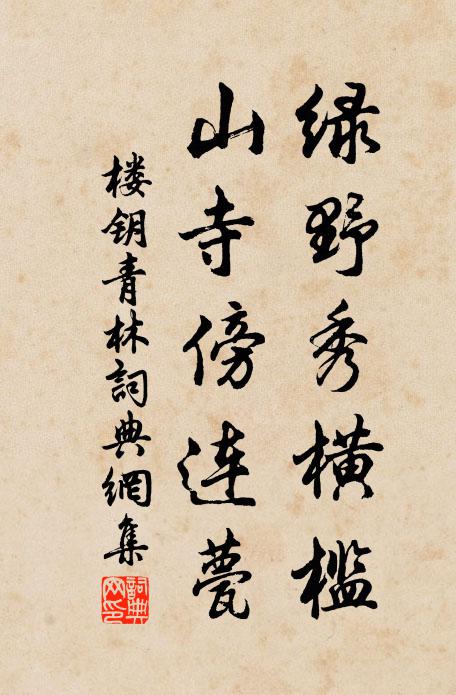 绿野秀横槛
山寺傍连甍
楼钥青林詞典網集
詞典